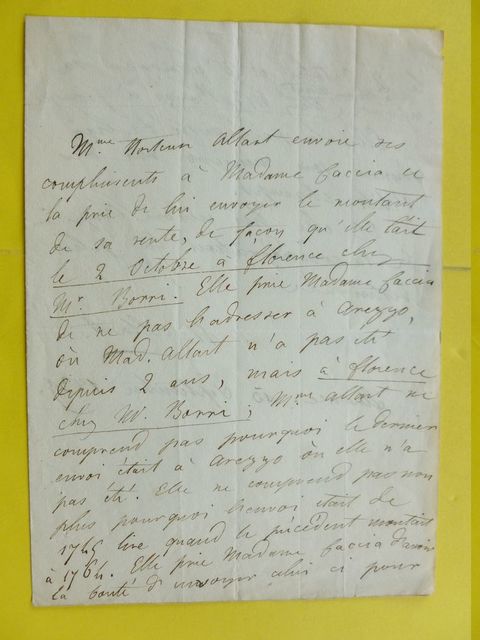 Mme Hortense Allart envoie ses
compliments à Madame Caccia et
la prie de lui envoyer le montant
de sa rente, de façon qu'elle l'ait
le 2 Octobre à florence chez
Mr. Borri. Elle prie Madame Caccia
de ne pas l'adresser à Arezzo,
où Mad. Allart n'a pas été
depuis 2 ans, mais à florence
chez Mr. Borri; Mme Allart ne
comprend pas pourquoi le dernier
envoi était à Arezzo où elle n'a
pas été. Elle ne comprend pas non
plus pourquoi l'envoi était de
1745 lire quand le précédent montait
à 1764. Elle prie Madame Caccia d'avoir
la bonté d'envoyer celui ci pour